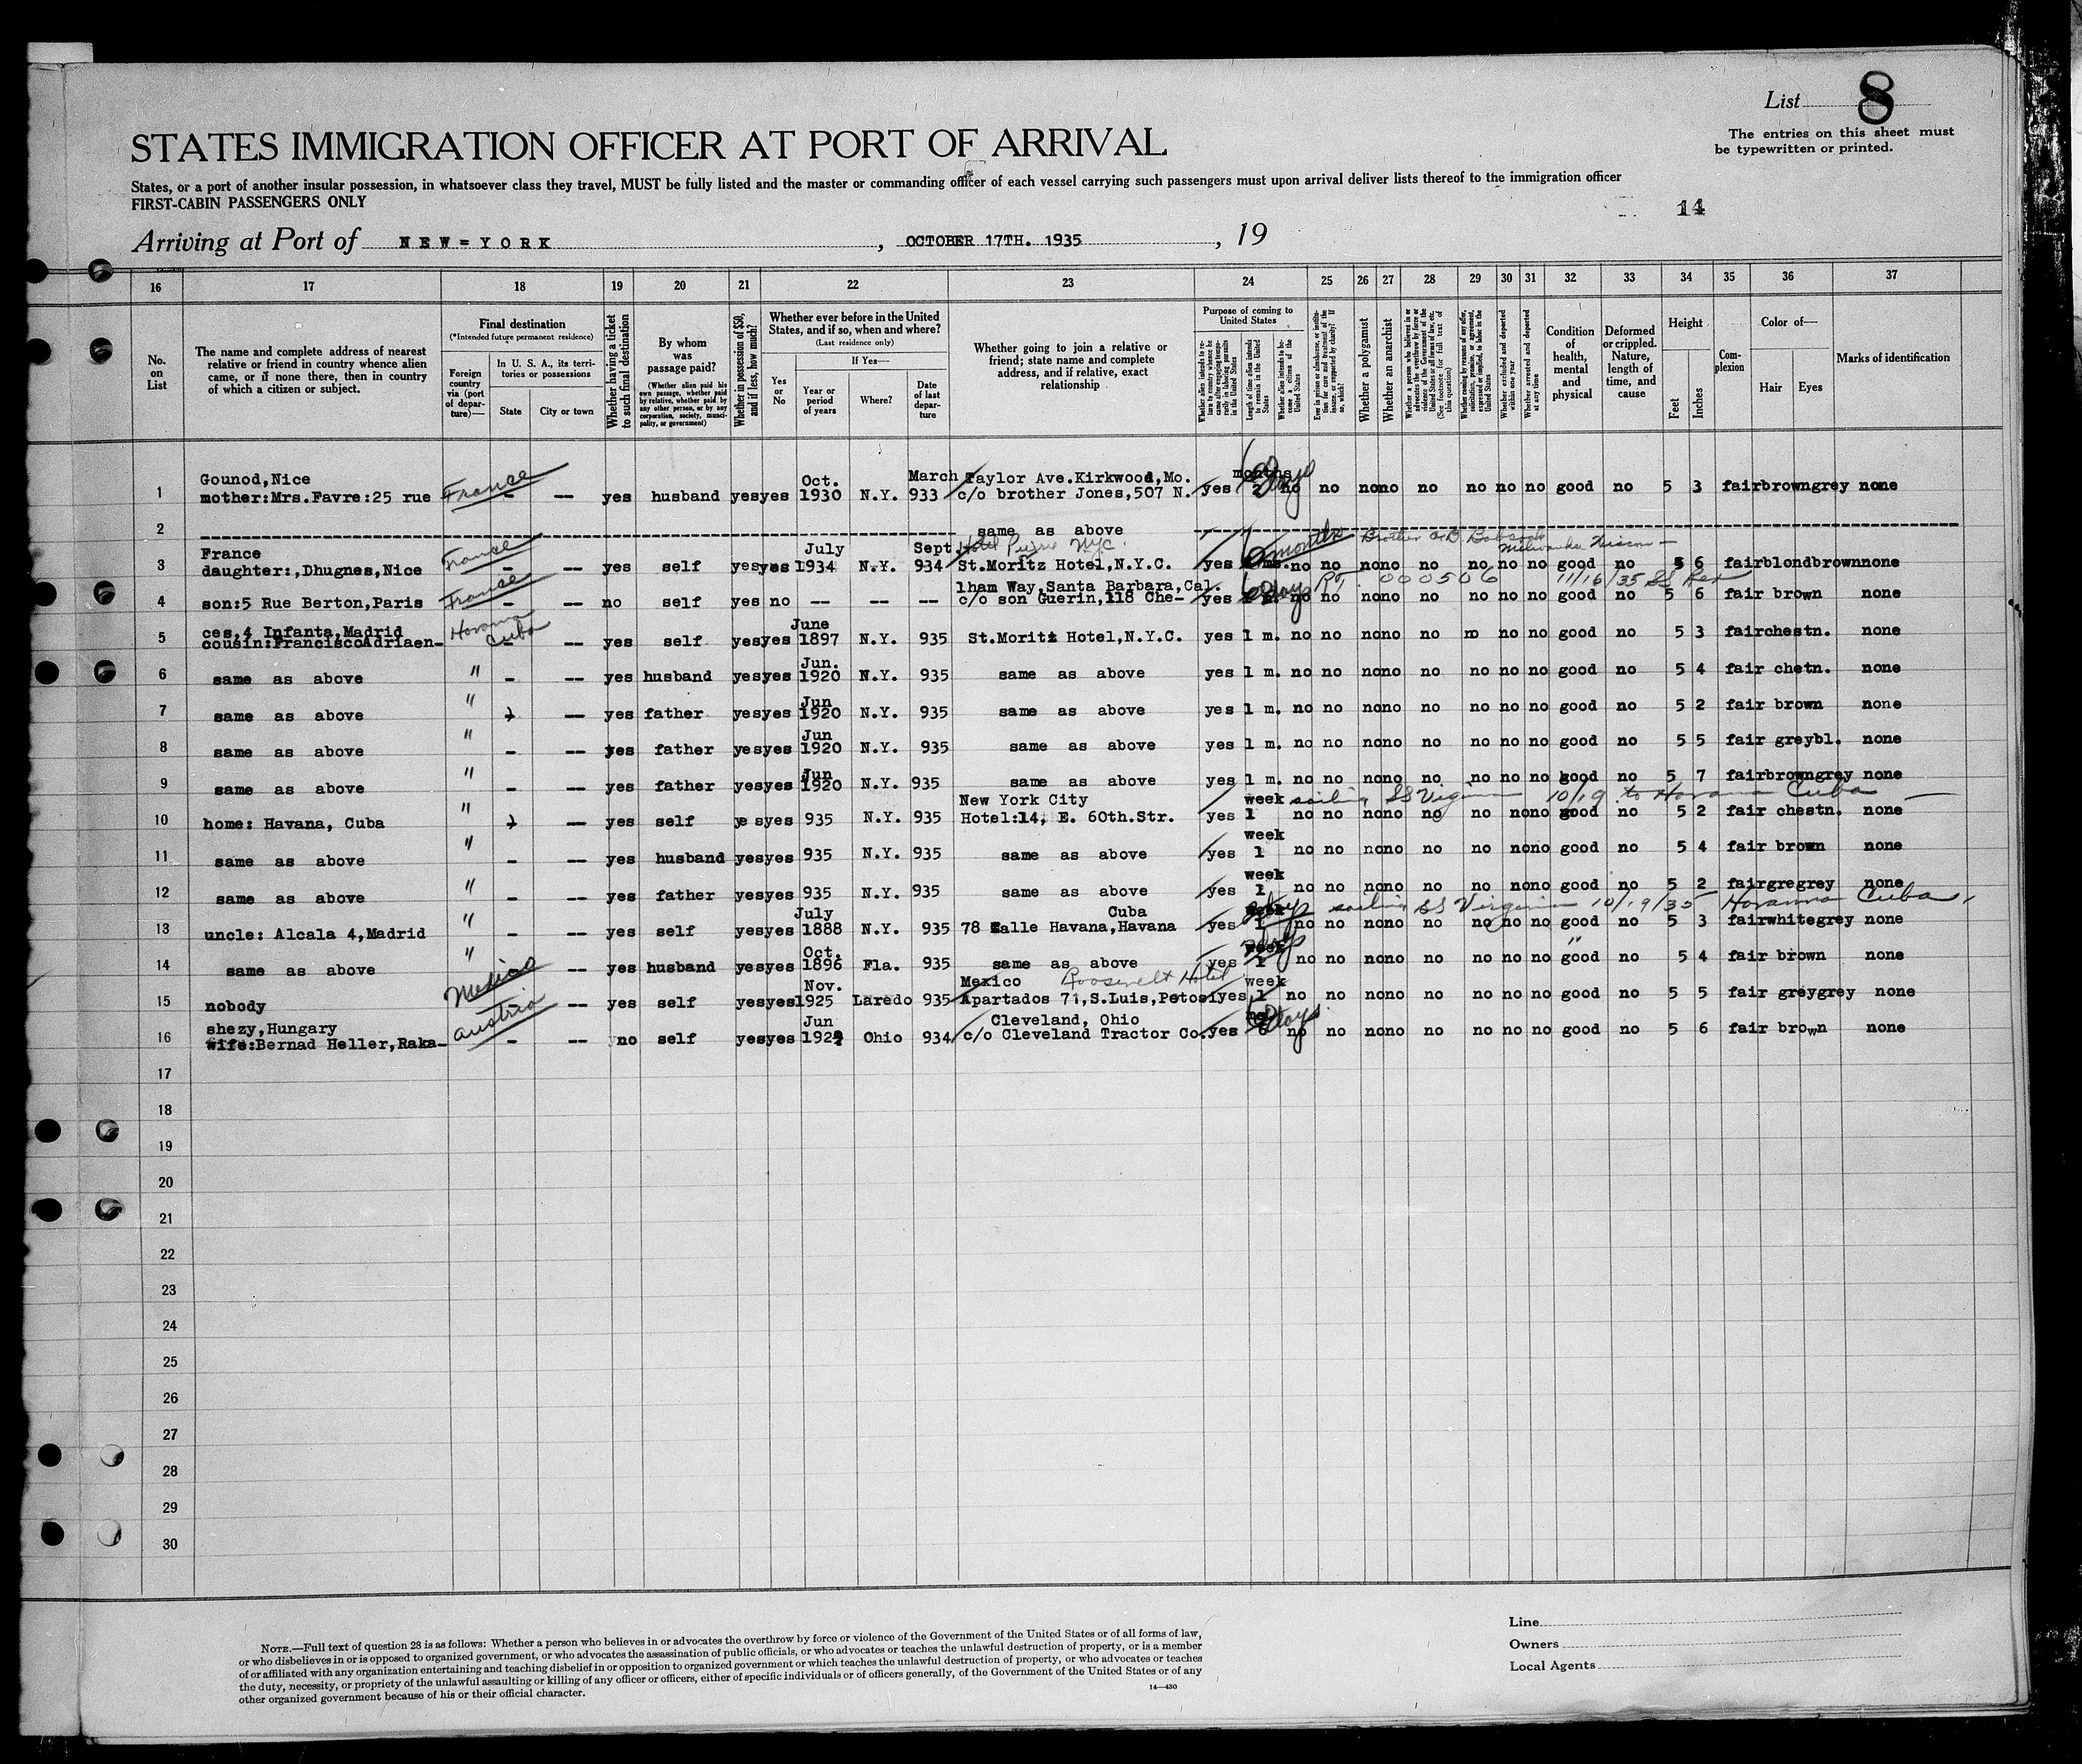 List 8
The entries on this sheet must
be typewritten or printed.
STATES IMMIGRATION OFFICER AT PORT OF ARRIVAL
States, or a port of another insular possession, in whatsoever class they travel, MUST be fully listed and the master or commanding officer of each vessel carrying such passengers must upon arrival deliver lists thereof to the immigration officer
FIRST-CABIN PASSENGERS ONLY
14
Arriving at Port of NEW=YORK, OCTOBER 17TH. 1935, 19
16 17 18 19 20 21 22 23 24 25 26 27 28 29 30 31 32 33 34 35 36 37
No. on List
The name and complete address of nearest relative or friend in country whence alien came, or if none there, then in country of which a citizen or subject.
Final destination
(*Intended future permanent residence)
Foreign country via (port of departure)—
In U. S. A., its territories or possessions
State
City or town
Whether having a ticket to such final destination
By whom was passage paid?
(Whether alien paid his own passage, whether paid by relative, whether paid by any other person, or by any corporation, society, municipality, or government)
Whether in possession of $50, and if less, how much?
Whether ever before in the United States, and if so, when and where?
(Last residence only)
Yes or No
If Yes—
Year or period of years
Where?
Date of last departure
Whether going to join a relative or friend; state name and complete address, and if relative, exact relationship
Purpose of coming to United States
Whether alien intends to return to country whence he came after engaging temporarily in laboring pursuits in the United States
Length of time alien intends to remain in the United States
Whether alien intends to become a citizen of the United States
Ever in prison or almshouse, or institution for care and treatment of the insane, or supported by charity? If so, which?
Whether a polygamist
Whether an anarchist
(See footnote for full text of this question)
Whether excluded and deported within one year
Whether arrested and deported at any time
Condition of health, mental and physical
Deformed or crippled. Nature, length of time, and cause
Height
Feet
Inches
Complexion
Color of—
Hair
Eyes
Marks of identification
Gounod,Nice Oct. March Taylor Ave.Kirkwood,Mo. months
1 mother:Mrs.Favre:25 rue France - -- yes husband yes yes 1930 N.Y. 933 c/o brother Jones,507 N. yes 2 no no no no no no no no good no 5 3 fair brown grey none
2 same as above
France July Sept Hotel Pierre NYC. 6 months Brother
3 daughter:,Dhugnes,Nice France - -- yes self yes yes 1934 N.Y. 934 St.Moritz Hotel,N.Y.C. yes no no no no no no no no good no 5 6 fair blond brown none
lham Way,Santa Barbara,Cal. 60 days 000506 11/16/35 SS Rex
4 son:5 Rue Berton,Paris France - -- no self yes no -- -- -- c/o son Guerin,118 Che- yes no no no no no no no no good no 5 6 fair brown none
ces,4 Infanta,Madrid Havana Cuba June
5 cousin:FranciscoAdriaen- - -- yes self yes yes 1897 N.Y. 935 St.Moritz Hotel,N.Y.C. yes 1 m. no no no no no no no no good no 5 3 fair chestn. none
Jun.
6 same as above " - -- yes husband yes yes 1920 N.Y. 935 same as above yes 1 m. no no no no no no no no good no 5 4 fair chetn. none
Jun
7 same as above " - -- yes father yes yes 1920 N.Y. 935 same as above yes 1 m. no no no no no no no no good no 5 2 fair brown none
Jun
8 same as above " - -- yes father yes yes 1920 N.Y. 935 same as above yes 1 m. no no no no no no no no good no 5 5 fair grey bl. none
Jun
9 same as above " - -- yes father yes yes 1920 N.Y. 935 same as above yes 1 m. no no no no no no no no good no 5 7 fair brown grey none
New York City week sailing SS Virginia 10/19 to Havana Cuba
10 home: Havana, Cuba " - -- yes self yes yes 935 N.Y. 935 Hotel:14, E. 60th.Str. yes 1 no no no no no no no no good no 5 2 fair chestn. none
week
11 same as above " - -- yes husband yes yes 935 N.Y. 935 same as above yes 1 no no no no no no no no good no 5 4 fair brown none
week
12 same as above " - -- yes father yes yes 935 N.Y. 935 same as above yes 1 no no no no no no no no good no 5 2 fair gre grey none
July Cuba week days sailing SS Virginia 10/19/35 Havanna Cuba
13 uncle: Alcala 4,Madrid " - -- yes self yes yes 1888 N.Y. 935 78 Calle Havana,Havana yes 1 no no no no no no no no good no 5 3 fair white grey none
Oct. week days "
14 same as above " - -- yes husband yes yes 1896 Fla. 935 same as above yes 1 no no no no no no no no good no 5 4 fair brown none
Nov. Mexico Roosevelt Hotel week
15 nobody Mexico - -- yes self yes yes 1925 Laredo 935 Apartados 71,S.Luis,Potosi yes 1 no no no no no no no no good no 5 5 fair grey grey none
shezy,Hungary Jun Cleveland, Ohio 60 days
16 wife:Bernad Heller,Raka- Austria - -- no self yes yes 1929 Ohio 934 c/o Cleveland Tractor Co. yes 6 no no no no no no no no good no 5 6 fair brown none
17
18
19
20
21
22
23
24
25
26
27
28
29
30
NOTE.—Full text of question 28 is as follows: Whether a person who believes in or advocates the overthrow by force or violence of the Government of the United States or of all forms of law,
or who disbelieves in or is opposed to organized government, or who advocates the assassination of public officials, or who advocates or teaches the unlawful destruction of property, or is a member
of or affiliated with any organization entertaining and teaching disbelief in or opposition to organized government or which teaches the unlawful destruction of property, or who advocates or teaches
the duty, necessity, or propriety of the unlawful assaulting or killing of any officer or officers, either of specific individuals or of officers generally, of the Government of the United States or of any
other organized government because of his or their official character.
14—430
Line
Owners
Local Agents